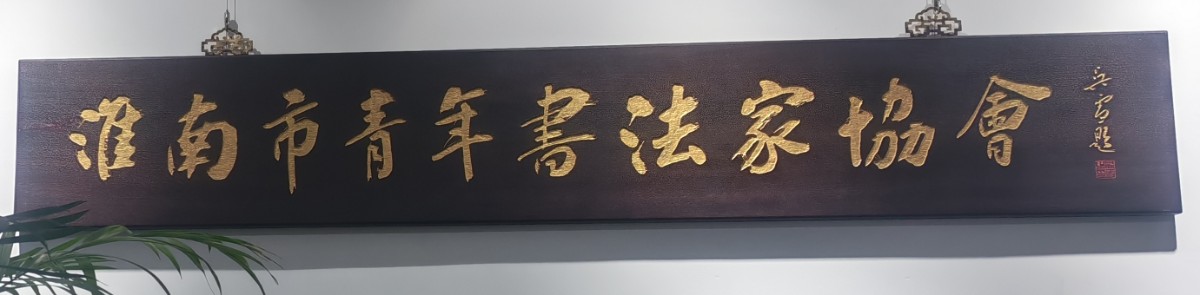 淮南市青年書法家協會
吴雪題